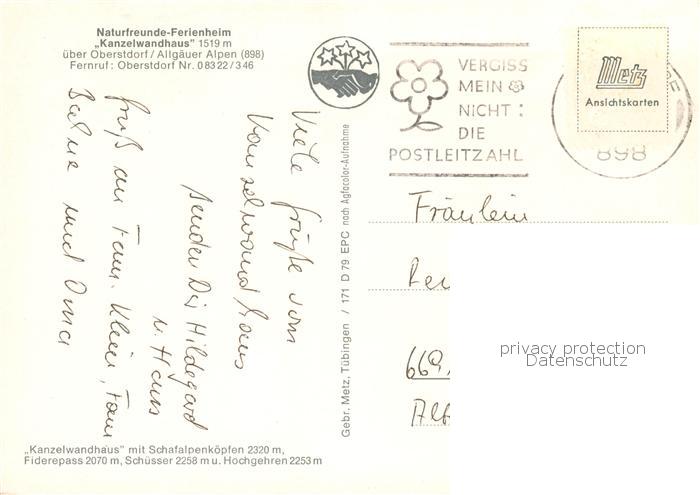 Naturfreunde-Ferienheim
„Kanzelwandhaus" 1519 m
über Oberstdorf / Allgäuer Alpen (898)
Fernruf: Oberstdorf Nr. 08322/346
Viele Grüße vom
Kanzelwandhaus
senden Dir Hildegard
u. Hans
Gruß an Fam. Klein, Fam
und Oma
„Kanzelwandhaus" mit Schafalpenköpfen 2320 m,
Fiderepass 2070 m, Schüsser 2258 m u. Hochgehren 2253 m
Gebr. Metz, Tübingen / 171 D 79 EPC nach Agfacolor-Aufnahme
VERGISS
MEIN
NICHT:
DIE
POSTLEITZAHL
Metz
Ansichtskarten
898
Fräulein
669
privacy protection
Datenschutz